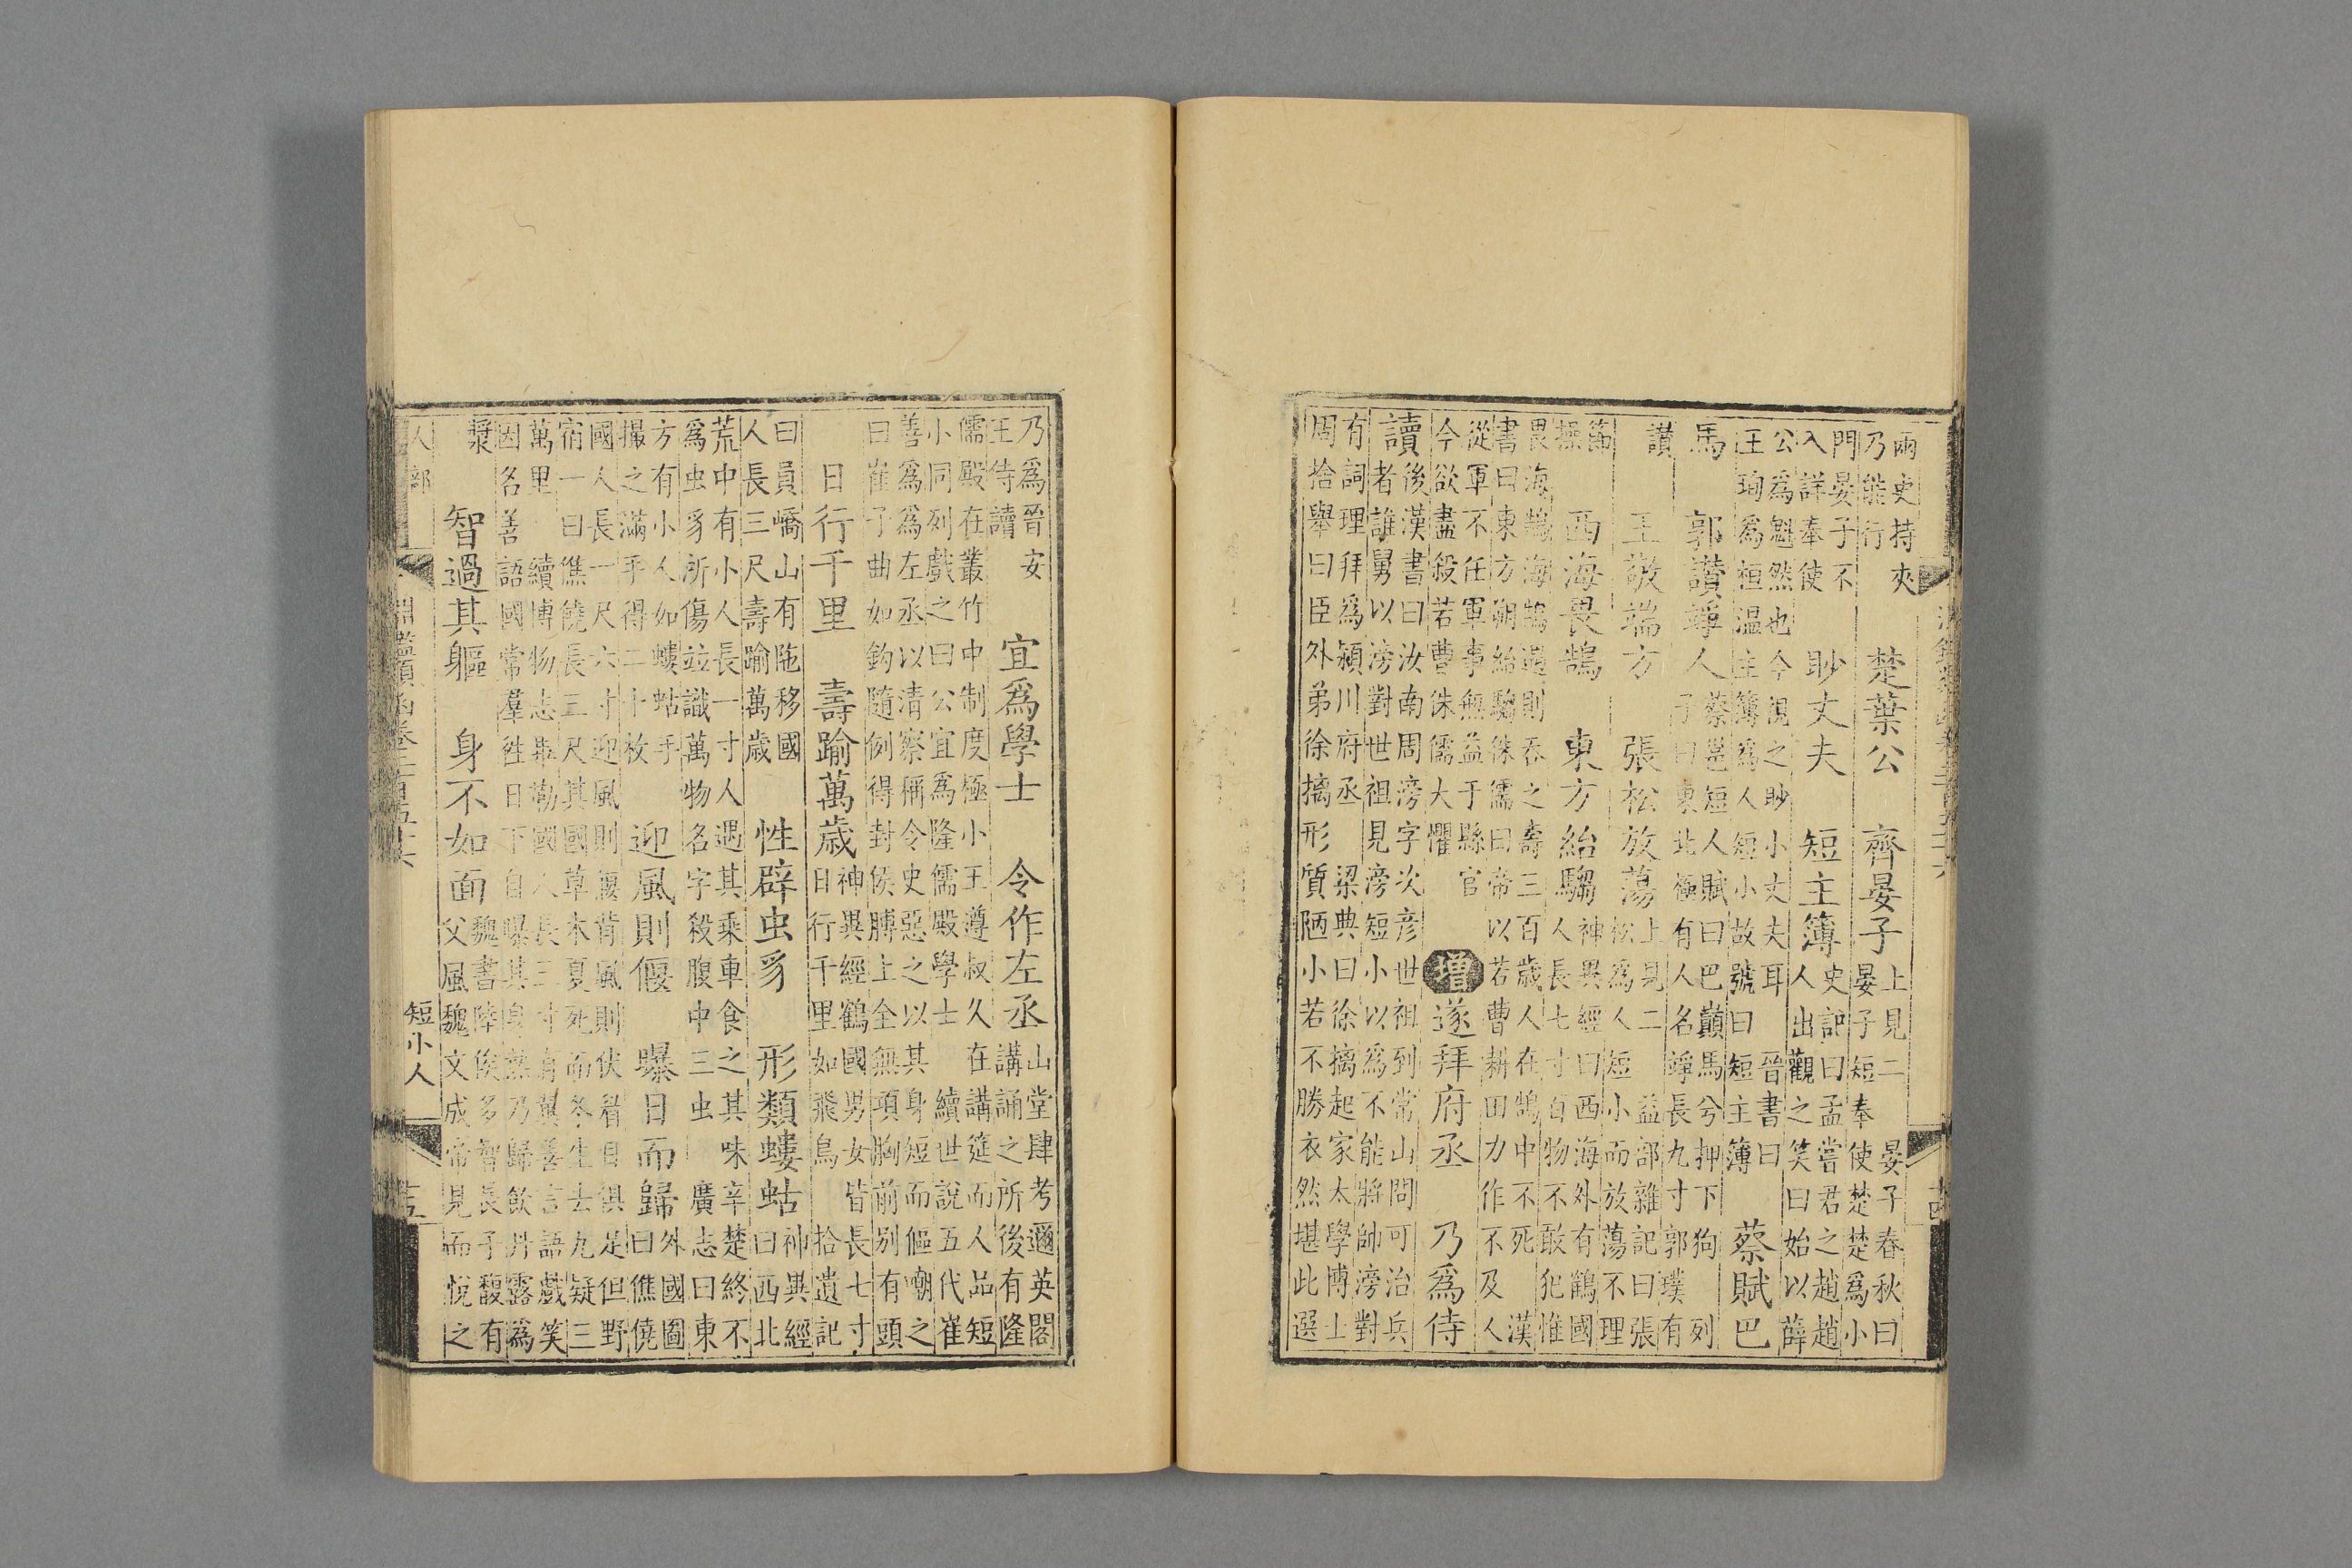 兩史持夾
乃能行
楚葉公 齊晏子
上見二 晏子春秋曰
晏子短奉使楚楚爲小
門晏子不
入詳奉使
眇丈夫 短主簿
史記曰孟嘗君之趙趙
人出觀之笑曰始以薛
公爲魁然也今視之眇小丈夫耳 晉書曰
王珣爲桓温主簿爲人短小故號曰短主簿
蔡賦巴
馬 郭讃竫人
蔡邕短人賦曰巴巔馬兮押下狗 列
子曰東北極有人名竫長九寸郭璞有
讃
王敬端方 張松放蕩
上見二 益部雜記曰張
松爲人短小而放蕩不理
節
操
西海畏鵠 東方紿騶
神異經曰西海外有鶴國
人長七寸百物不敢犯惟
畏海鵠海鵠遇則吞之壽三百歲人在鵠中不死 漢
書曰東方朔紿騶侏儒曰帝以若曹耕田力作不及人
從軍不任軍事無益于縣官
今欲盡殺若曹侏儒大懼
增 遂拜府丞 乃爲侍
讀
後漢書曰汝南周滂字次彦世祖到常山問可治兵
者誰舅以滂對世祖見滂短小以爲不能將帥滂對
有詞理拜爲潁川府丞 梁典曰徐摛起家太學博士
周拾舉曰臣外弟徐摛形質陋小若不勝衣然堪此選
乃爲晉安
王侍讀
宜爲學士 令作左丞
山堂肆考邇英閣
講誦之所後有隆
儒殿在叢竹中制度極小王遵叔久在講筵而人品短
小同列戲之曰公宜爲隆儒殿學士 續世説五代崔
善爲爲左丞以清察稱令史惡之以其身短而傴嘲之
曰崔子曲如鈎隨例得封侯膊上全無項胸前別有頭
日行千里 壽踰萬歳
神異經鶴國男女皆長七寸
日行千里如飛鳥 拾遺記
曰員嶠山有陁移國
人長三尺壽踰萬歳
性辟虫豸 形類螻蛄
神異經
曰西北
荒中有小人長一寸人遇其乘車食之其味辛楚終不
爲虫豸所傷竝識萬物名字殺腹中三虫 廣志曰東
方有小人如螻蛄手
撮之滿手得二十枚
迎風則偃 曝日而歸
外國圖
曰僬僥
國人長一尺六寸迎風則偃背風則伏眉目俱足但野
宿一曰僬僥長三尺其國草木夏死而冬生去九疑三
萬里 續博物志勒國人長三寸有翼善言語戲笑
因名善語國常羣往日下自曝其身熱乃歸飲丹露爲
漿
智過其軀 身不如面
魏書陸俟多智長子馥有
父風魏文成帝見而悅之
人部 淵鑑類函卷二百五十六 短小人